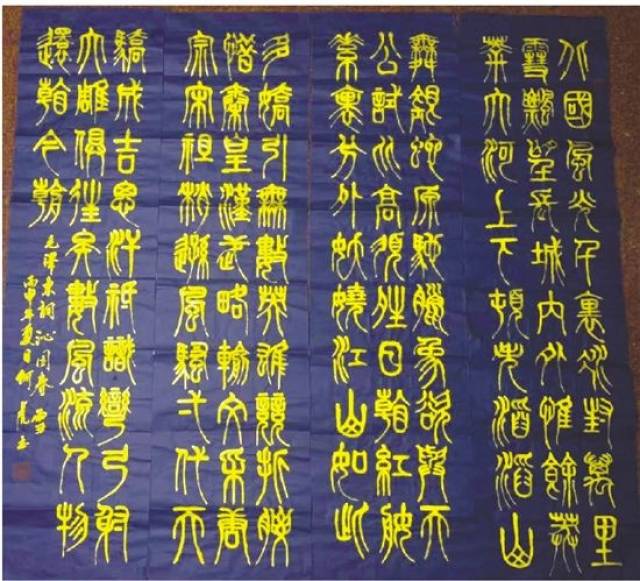 北國風光千裏冰封萬里
雪飄望長城內外惟餘莽
莽大河上下頓失滔滔山
舞銀蛇原馳臘象欲與天
公試比高須晴日看紅妝
素裹分外妖嬈江山如此
多嬌引無數英雄競折腰
惜秦皇漢武略輸文采唐
宗宋祖稍遜風騷弌代天
驕成吉思汗祇識彎弓射
大雕俱往矣數風流人物
還看今朝
毛澤東詞沁園春雪
丙申年夏月